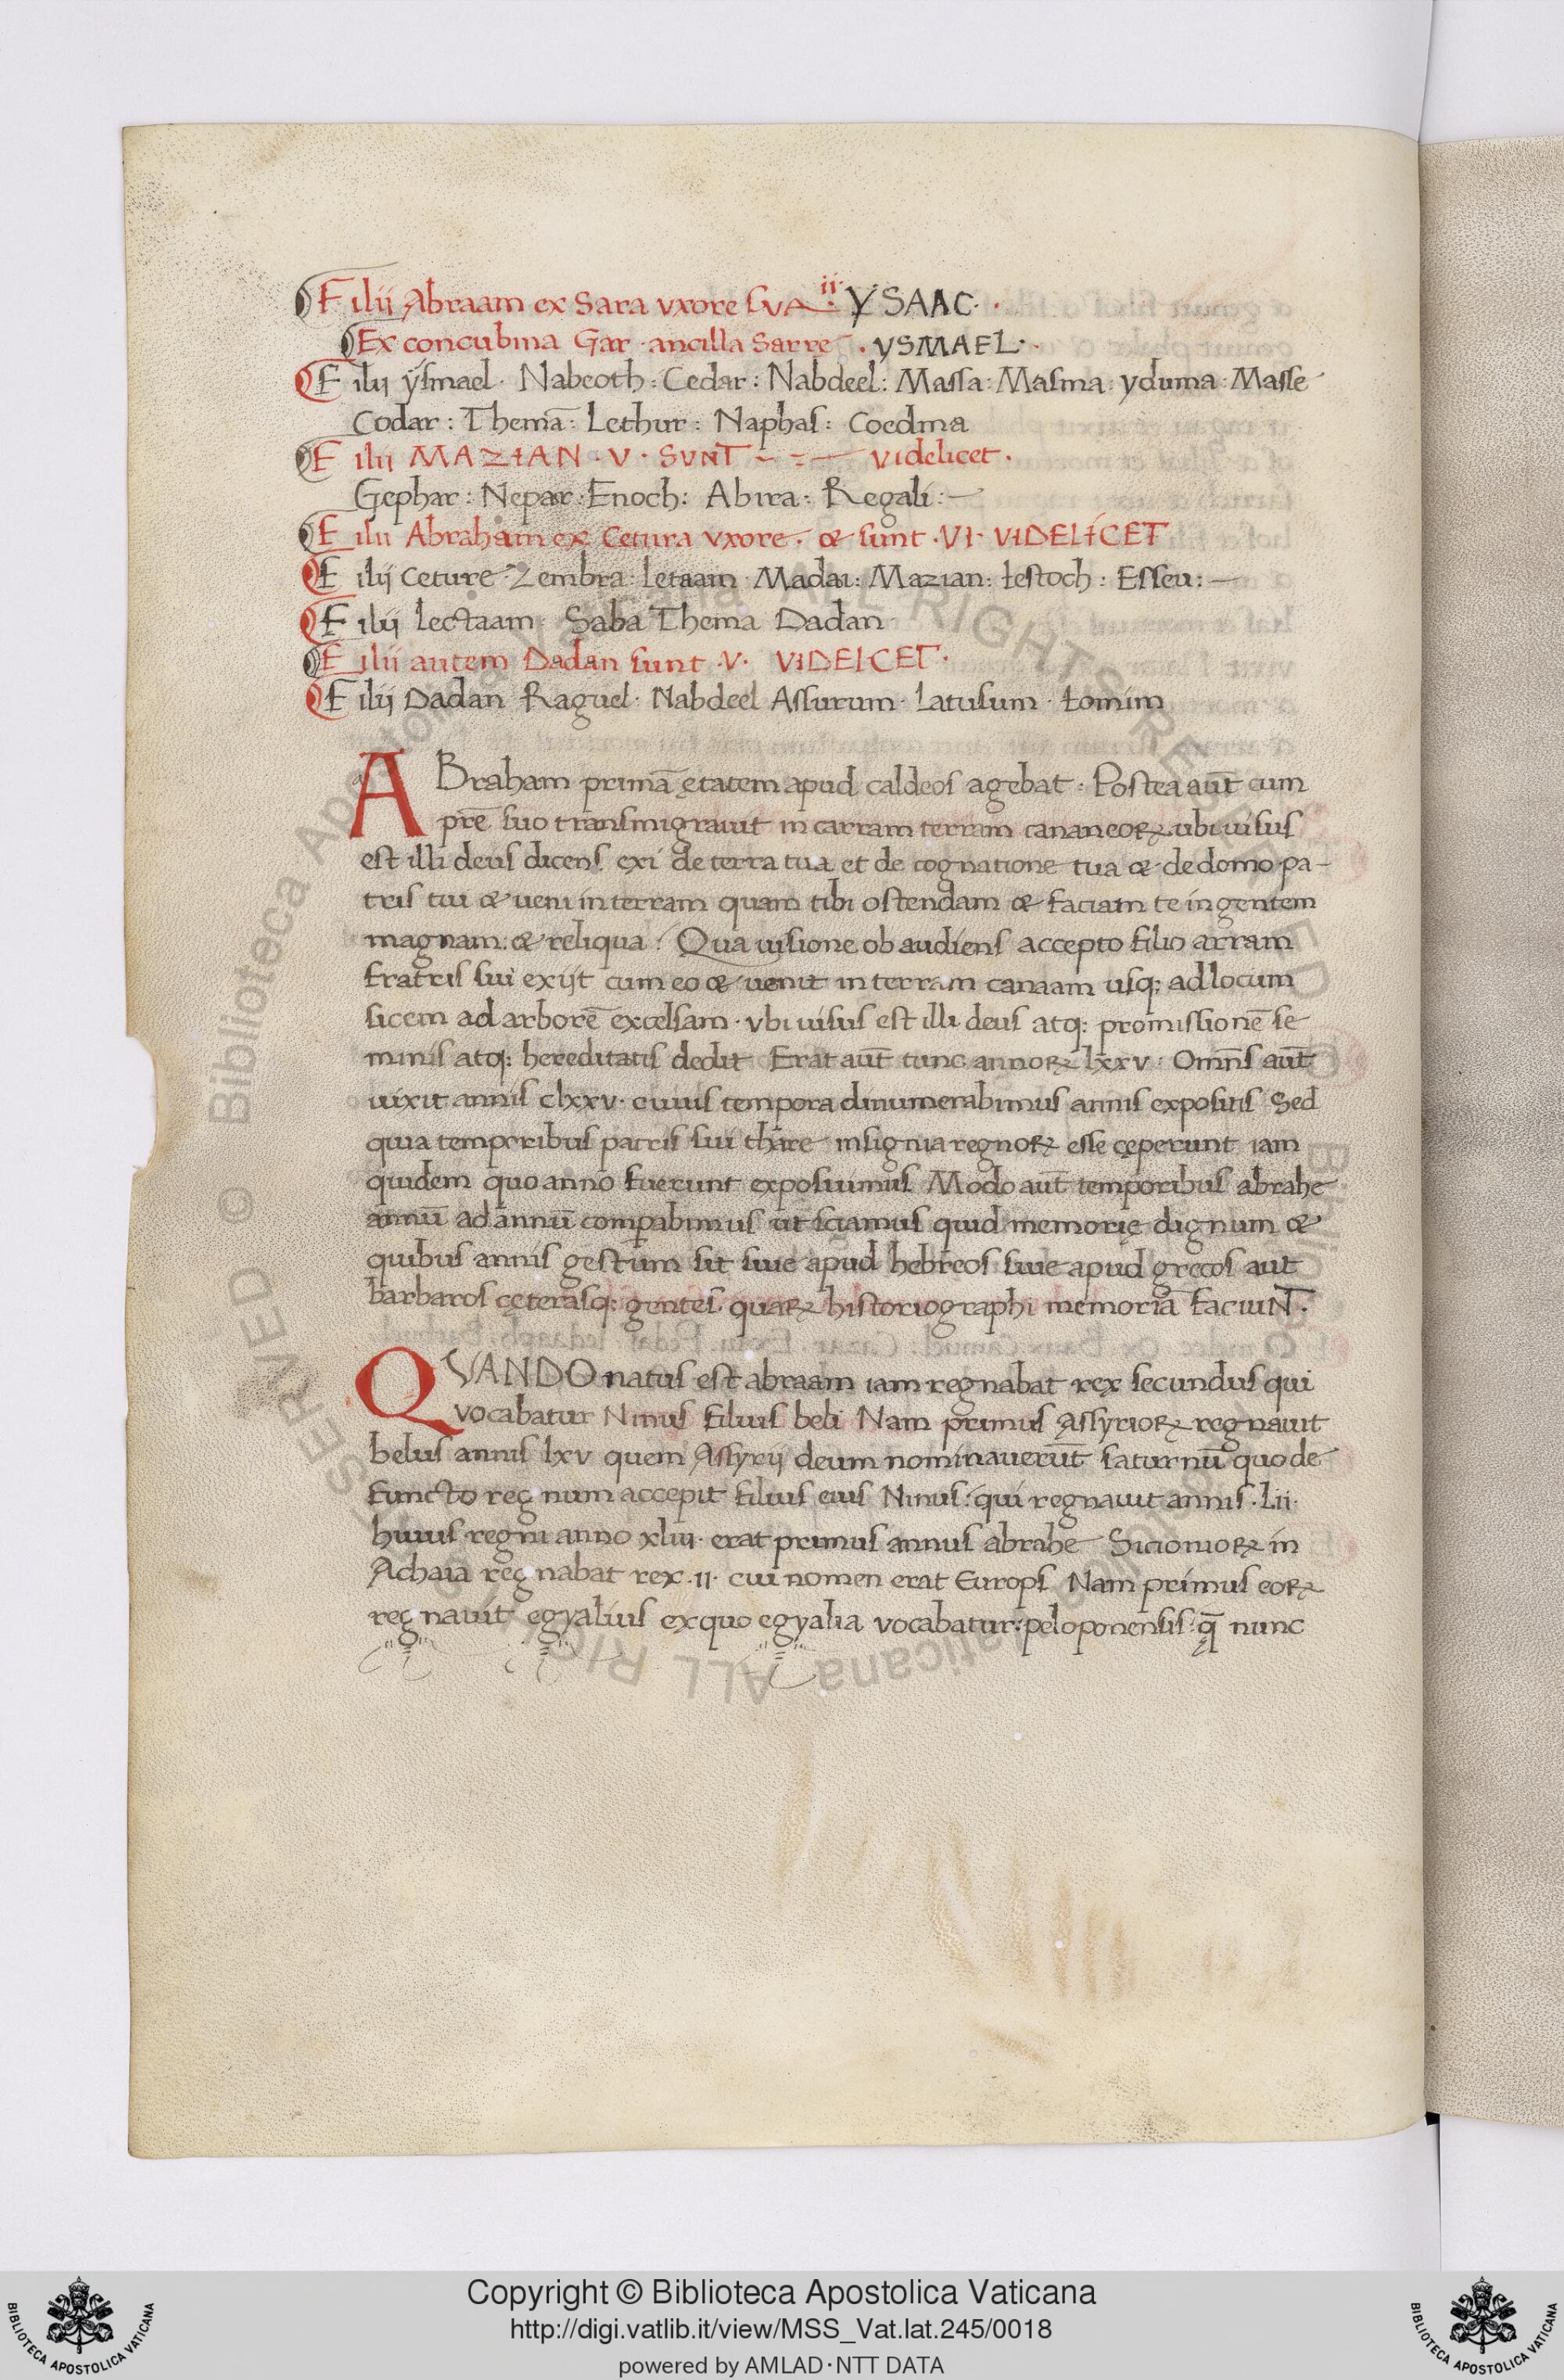 Filii Abraam ex Sara vxore sVA ii· YSAAC·
Ex concubina Gar · ancilla Sarre · YSMAEL·
Filii ysmael · Nabeoth : Cedar : Nabdeel : Massa : Masma : yduma : Masse
Codar : Themā : Lethur : Naphas : Coedma
Filii MAZIAN · V · SVNT videlicet ·
Gephar : Nepar : Enoch : Abira : Regali :
Filii Abraham ex Cetura vxore · & sunt · VI · VIDELICET
Filij Ceture Zembra : letaam · Madai : Mazian : Iestoch : Esseu :
Filij lectaam Saba Thema Dadan
Filii autem Dadan sunt · V · VIDEICET ·
Filij Dadan Raguel · Nabdeel Assurum · Latusum · Lomim
ABraham primā ętatem apud caldeos agebat · Postea aut̄ cum
pr̄e suo transmigrauit in carram terram cananeoꝝ ubi uisus
est illi deus dicens exi de terra tua et de cognatione tua & de domo pa-
tris tui & ueni in terram quam tibi ostendam & faciam te in gentem
magnam : & reliqua · Qua uisione ob audiens accepto filio arram
fratris sui exijt cum eo & uenit in terram canaam usq; ad locum
sicem ad arborē excelsam · vbi uisus est illi deus atq; promissionē se
minis atq; hereditatis dedit Erat aut̄ tunc annoꝝ lxxv · Omn̄s aut̄
uixit annis clxxv · cuius tempora dinumerabimus annis expositis Sed
quia temporibus patris sui thare insignia regnoꝝ esse cęperunt iam
quidem quo anno fuerunt exposuimus Modo aut̄ temporibus abrahe
annū ad annū comꝑabimus ut sciamus quid memorię dignum &
quibus annis gestum sit siue apud hebreos siue apud grecos aut
barbaros cęterasq; gentes quaꝝ historiographi memoriā faciuNT ·
QVANDO natus est abraam iam regnabat rex secundus qui
vocabatur Ninus filius beli Nam primus Assyrioꝝ regnauit
belus annis lxv quem Assyrij deum nominauerūt saturnū quo de
functo regnum accepit filius eius Ninus : qui regnauit annis · Lii ·
huius regni anno xliii · erat primus annus abrahe Sicionioꝝ in
Achaia regnabat rex · II · cui nomen erat Europs Nam primus eoꝝ
regnauit egyalius ex quo egyalia vocabatur : peloponensis : q̄ nunc
Copyright © Biblioteca Apostolica Vaticana
http://digi.vatlib.it/view/MSS_Vat.lat.245/0018
powered by AMLAD·NTT DATA
BIBLIOTECA APOSTOLICA VATICANA
BIBLIOTECA APOSTOLICA VATICANA